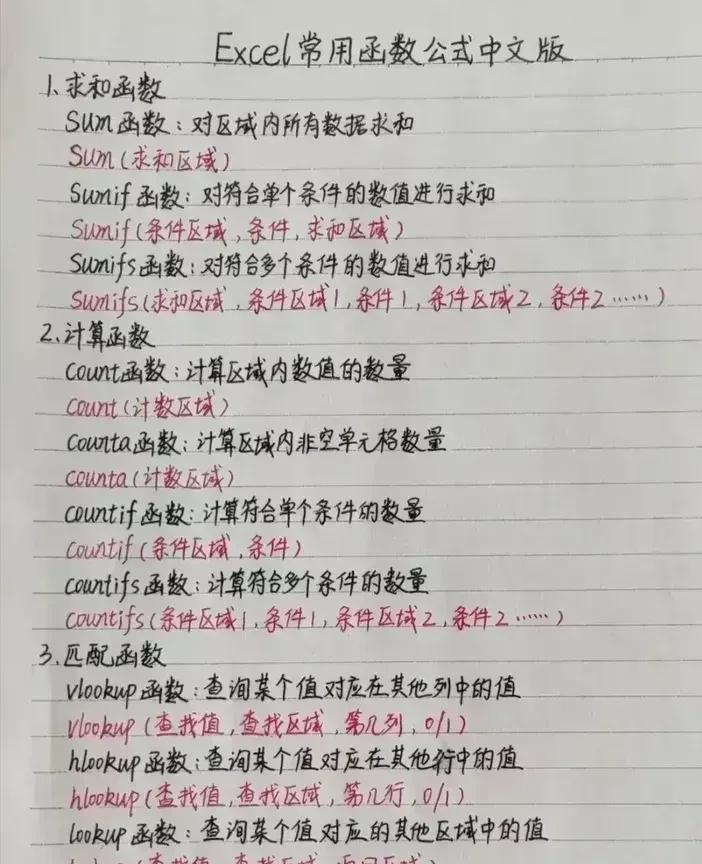 Excel常用函数公式中文版
1、求和函数
Sum函数：对区域内所有数据求和
Sum(求和区域)
Sumif函数：对符合单个条件的数值进行求和
Sumif(条件区域,条件,求和区域)
Sumifs函数：对符合多个条件的数值进行求和
Sumifs(求和区域,条件区域1,条件1,条件区域2,条件2……)
2、计算函数
count函数：计算区域内数值的数量
count(计数区域)
counta函数：计算区域内非空单元格数量
counta(计数区域)
countif函数：计算符合单个条件的数量
countif(条件区域,条件)
countifs函数：计算符合多个条件的数量
countifs(条件区域1,条件1,条件区域2,条件2……)
3、匹配函数
vlookup函数：查询某个值对应在其他列中的值
vlookup(查找值,查找区域,第几列,0/1)
hlookup函数：查询某个值对应在其他行中的值
hlookup(查找值,查找区域,第几行,0/1)
lookup函数：查询某个值对应的其他区域中的值